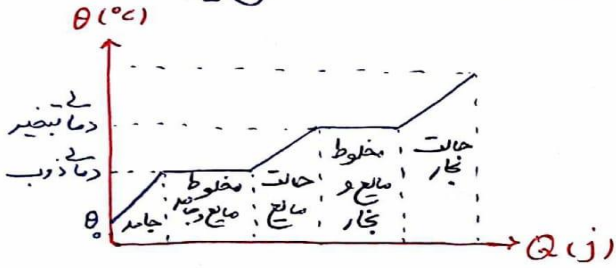 θ(°C)
دمای تبخیر
دمای ذوب
θ₀
جامد
مخلوط مایع و جامد
حالت مایع
مخلوط مایع و بخار
حالت بخار
Q(j)